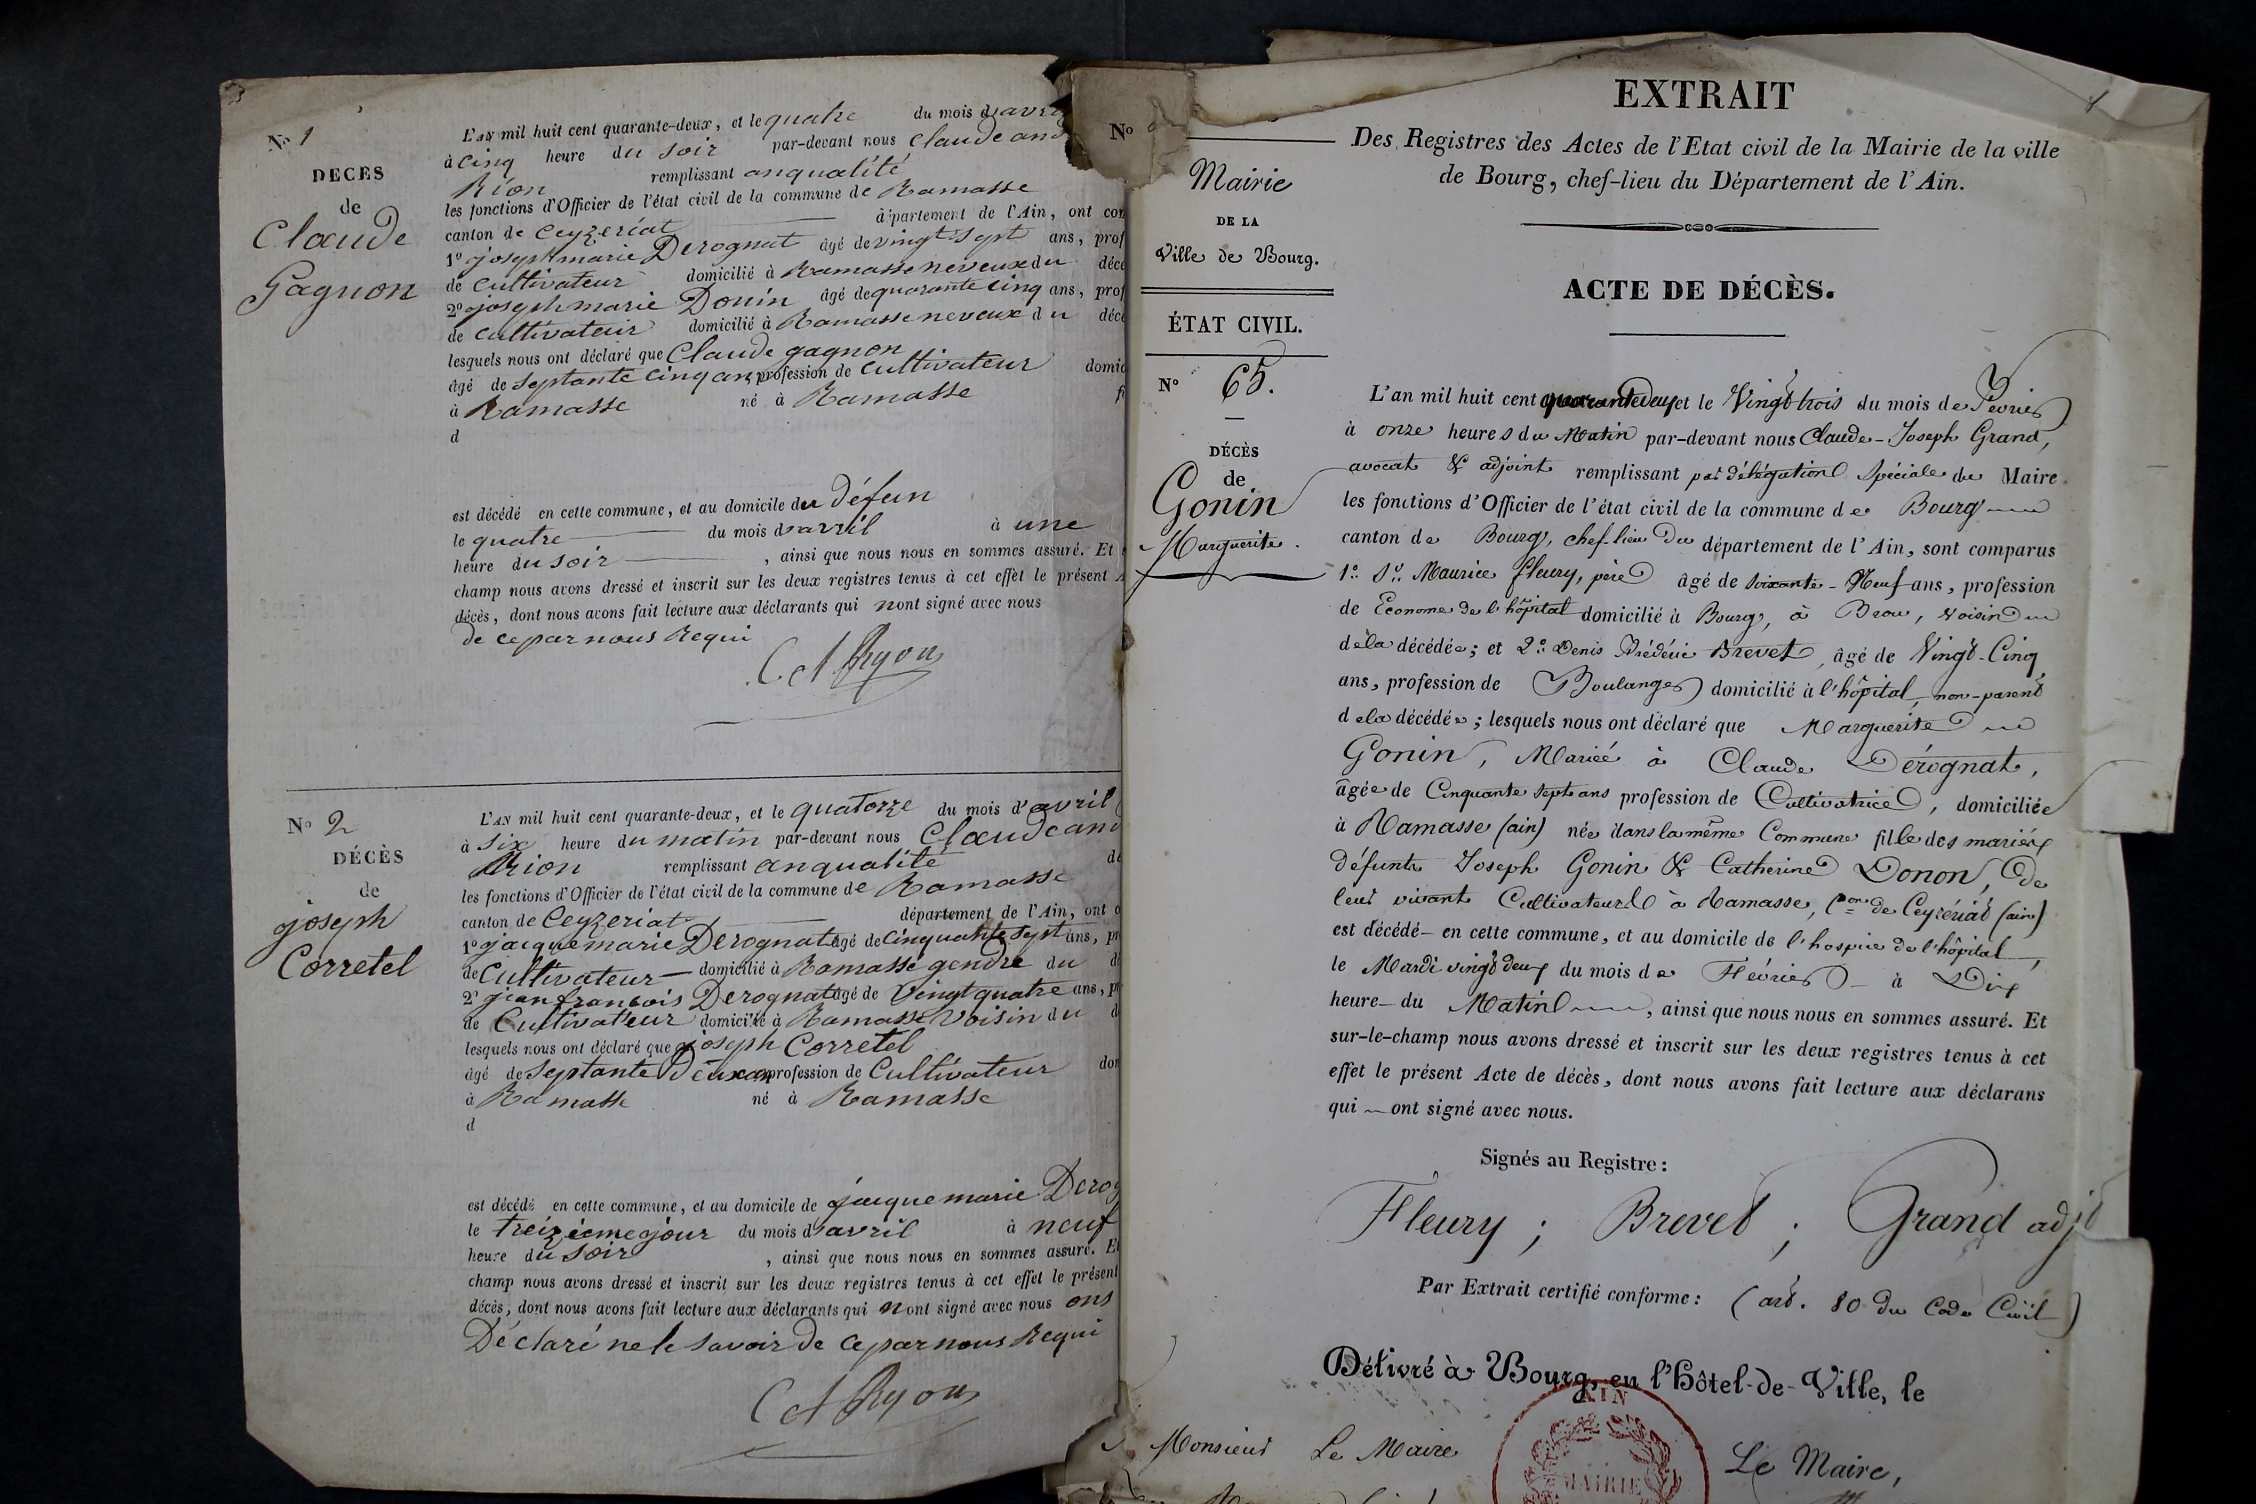 No 1
DECES
de
Claude
Gagnon
L'AN mil huit cent quarante-deux, et le quatre du mois d'avril
à cinq heure du soir par-devant nous Claude and
Rion remplissant anqualité
les fonctions d'Officier de l'état civil de la commune de Ramasse
canton de Ceyzeriat département de l'Ain, ont com
1º joseph marie Derognat âgé de vingt sept ans, prof
de Cultivateur domicilié à Ramasse neveux du décé
2º joseph marie Donin âgé de quarante cinq ans, prof
de Cultivateur domicilié à Ramasse neveux du décé
lesquels nous ont déclaré que Claude gagnon
âgé de septante cinq ans, profession de Cultivateur domic
à Ramasse né à Ramasse fi
d
est décédé en cette commune, et au domicile du défun
le quatre du mois d'avril à une
heure du soir , ainsi que nous nous en sommes assuré. Et
champ nous avons dressé et inscrit sur les deux registres tenus à cet effet le présent A
décès, dont nous avons fait lecture aux déclarants qui nont signé avec nous
de ce par nous Requi
C A Ryon
No 2
DÉCÈS
de
joseph
Corretel
L'AN mil huit cent quarante-deux, et le quatorze du mois d'avril
à six heure du matin par-devant nous Claude and
Rion remplissant anqualité de
les fonctions d'Officier de l'état civil de la commune de Ramasse
canton de Ceyzeriat département de l'Ain, ont c
1º jacque marie Derognat âgé de cinquante sept ans, pr
de Cultivateur domicilié à Ramasse gendre du d
2º jean francois Derognat âgé de vingt quatre ans, pr
de Cultivateur domicilié à Ramasse Voisin du d
lesquels nous ont déclaré que joseph Corretel
âgé de septante deux ans profession de Cultivateur dom
à Ramasse né à Ramasse
d
est décédé en cette commune, et au domicile de jacque marie Derog
le treizieme jour du mois d'avril à neuf
heure du soir , ainsi que nous nous en sommes assuré. Et
champ nous avons dressé et inscrit sur les deux registres tenus à cet effet le présent
décès, dont nous avons fait lecture aux déclarants qui nont signé avec nous ons
Déclaré ne le savoir de ce par nous Requi
C A Ryon
No
Mairie
DE LA
Ville de Bourg.
ÉTAT CIVIL.
No 65.
DÉCÈS
de
Gonin
Marguerite.
EXTRAIT
Des Registres des Actes de l'Etat civil de la Mairie de la ville
de Bourg, chef-lieu du Département de l'Ain.
ACTE DE DÉCÈS.
L'an mil huit cent quarante deux et le Vingt trois du mois de Février
à onze heures du Matin par-devant nous Claude-Joseph Grand,
avocat & adjoint remplissant par délégation spéciale du Maire
les fonctions d'Officier de l'état civil de la commune de Bourg
canton de Bourg, chef-lieu du département de l'Ain, sont comparus
1º Sr. Maurice fleury, père âgé de soixante-Neuf ans, profession
de Econome de l'hôpital domicilié à Bourg, à Brou, voisin
de la décédée; et 2º Denis Frédéric Brevet, âgé de Vingt-Cinq
ans, profession de Boulanger domicilié à l'hôpital, non-parent
de la décédée; lesquels nous ont déclaré que Marguerite
Gonin, Mariée à Claude Dérognat,
âgée de Cinquante sept ans profession de Cultivatrice, domiciliée
à Ramasse (ain) née dans la même Commune fille des mariés
défunts Joseph Gonin & Catherine Donon, de
leur vivant Cultivateurs à Ramasse, Con de Ceyzériat (ain)
est décédé en cette commune, et au domicile de l'hospice de l'hôpital,
le Mardi vingt deux du mois de Février à Dix
heure du Matin, ainsi que nous nous en sommes assuré. Et
sur-le-champ nous avons dressé et inscrit sur les deux registres tenus à cet
effet le présent Acte de décès, dont nous avons fait lecture aux déclarans
qui ont signé avec nous.
Signés au Registre:
Fleury; Brevet; Grand adjt
Par Extrait certifié conforme: (art. 80 du Code Civil)
Délivré à Bourg, en l'hôtel-de-Ville, le
AIN
MAIRIE
Monsieur Le Maire
Le Maire,